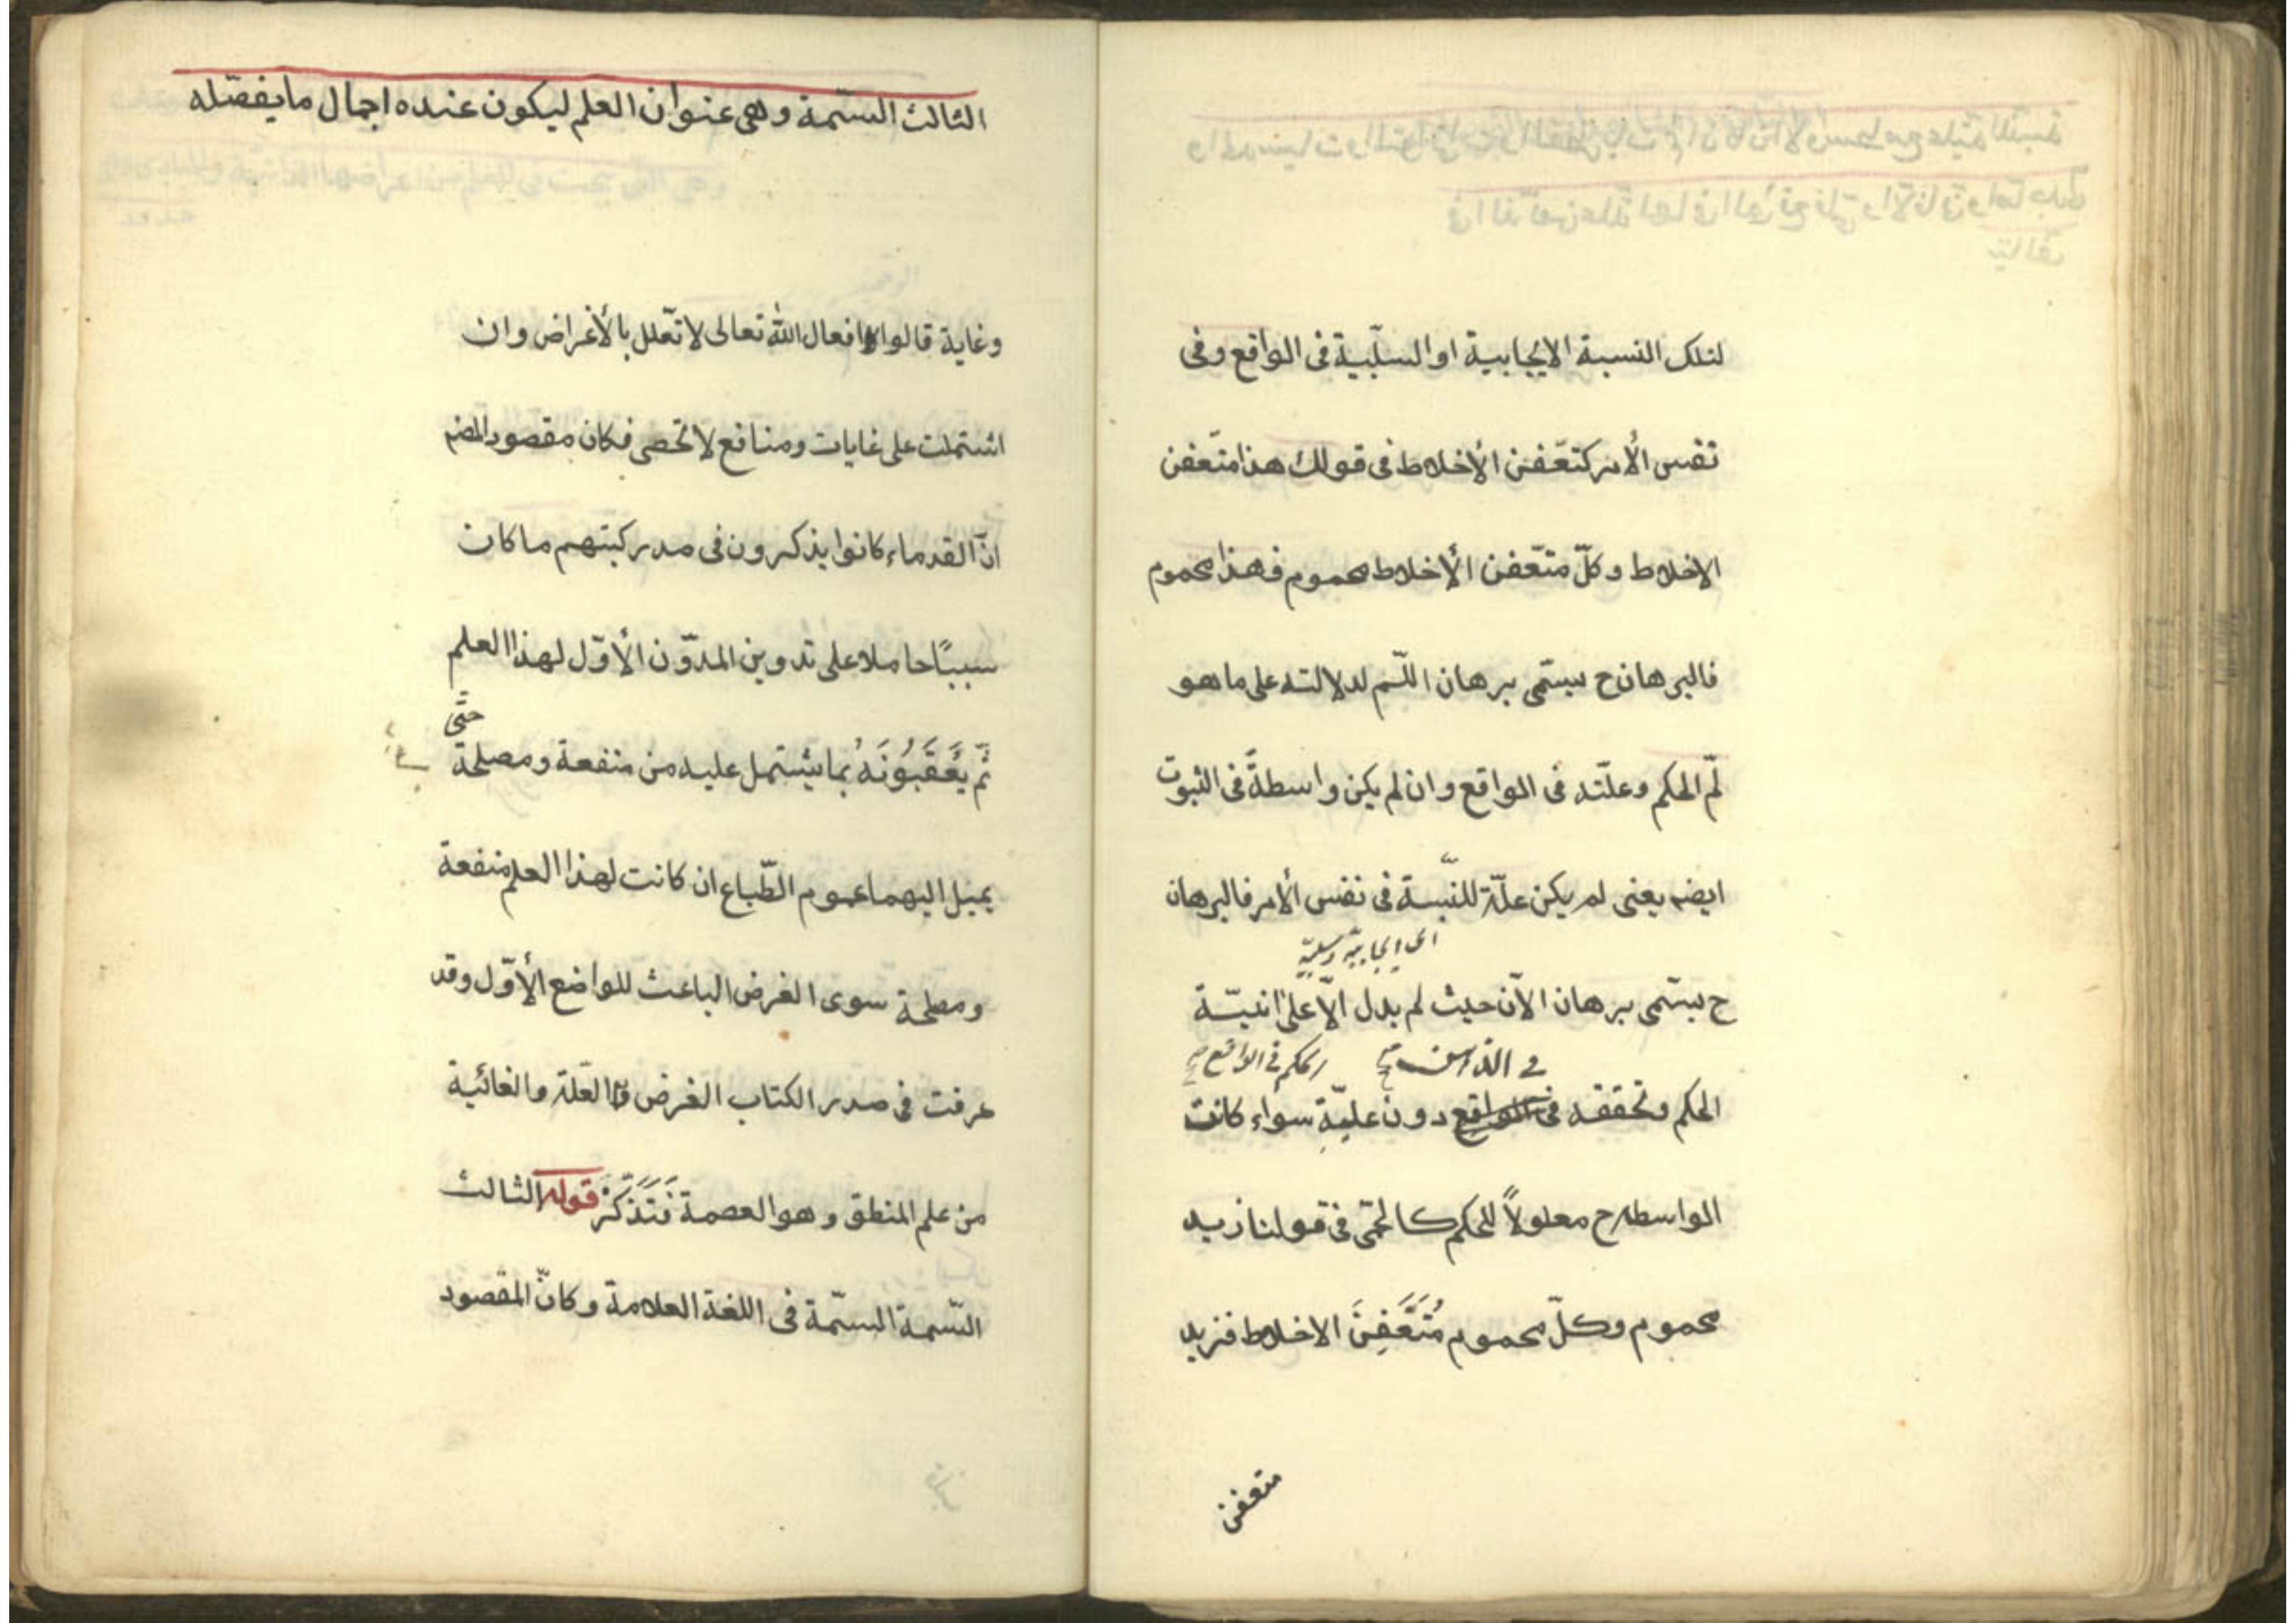 لتلك النسبة الايجابية او السلبية فى الواقع وفى
نفس الأمر كتعّفن الأخلاط فى قولك هذا متعّفن
الاخلاط وكلّ متعّفن الأخلاط محموم فهذا محموم
فالبرهان ح يسمّى برهان اللّم لدلالته على ما هو
لمّ الحكم وعلّته فى الواقع وان لم يكن واسطةً فى الثبوت
ايضه يعنى لم يكن علّة للنّسبة فى نفس الأمر فالبرهان
اى ايجابيّة وسلبيّة
ح يسمّى برهان الآنّ حيث لم يدل الّا على انيّة
فى الذهن صح الحكم فى الواقع صح
الحكم وتحققه فى الواقع دون عليّةِ سواء كانت
الواسطه ح معلولاً للحكم كالحمّى فى قولنا زيد
محموم وكلّ محموم مُتَعَّفِنَ الاخلاط فزيد
متعفن
الثالث السّمة وهى عنوان العلم ليكون عنده اجمال ما يفصّله
وغاية قالوا افعال الله تعالى لا تعّلل بالأغراض وان
اشتملت على غايات ومنافع لا تحصى فكان مقصود المصّ
انّ القدماء كانوا يذكرون فى صدر كتبهم ما كان
سببًا حاملا على تدوين المدوّن الأوّل لهذا العلم
حتّى
ثمّ يَُعَقّبُونَهُ بما يشتمل عليه من منفعة ومصلحة
يميل اليهما عموم الطّباع ان كانت لهذا العلم منفعة
ومصلحة سوى الغرض الباعث للواضع الأوّل وقد
عرفت فى صدر الكتاب الغرض والعلة والغائية
من علم المنطق وهو العصمة فَتَذَكّرْ قوله الثالث
السّمة السّمة فى اللغة العلامة وكانّ المقصود